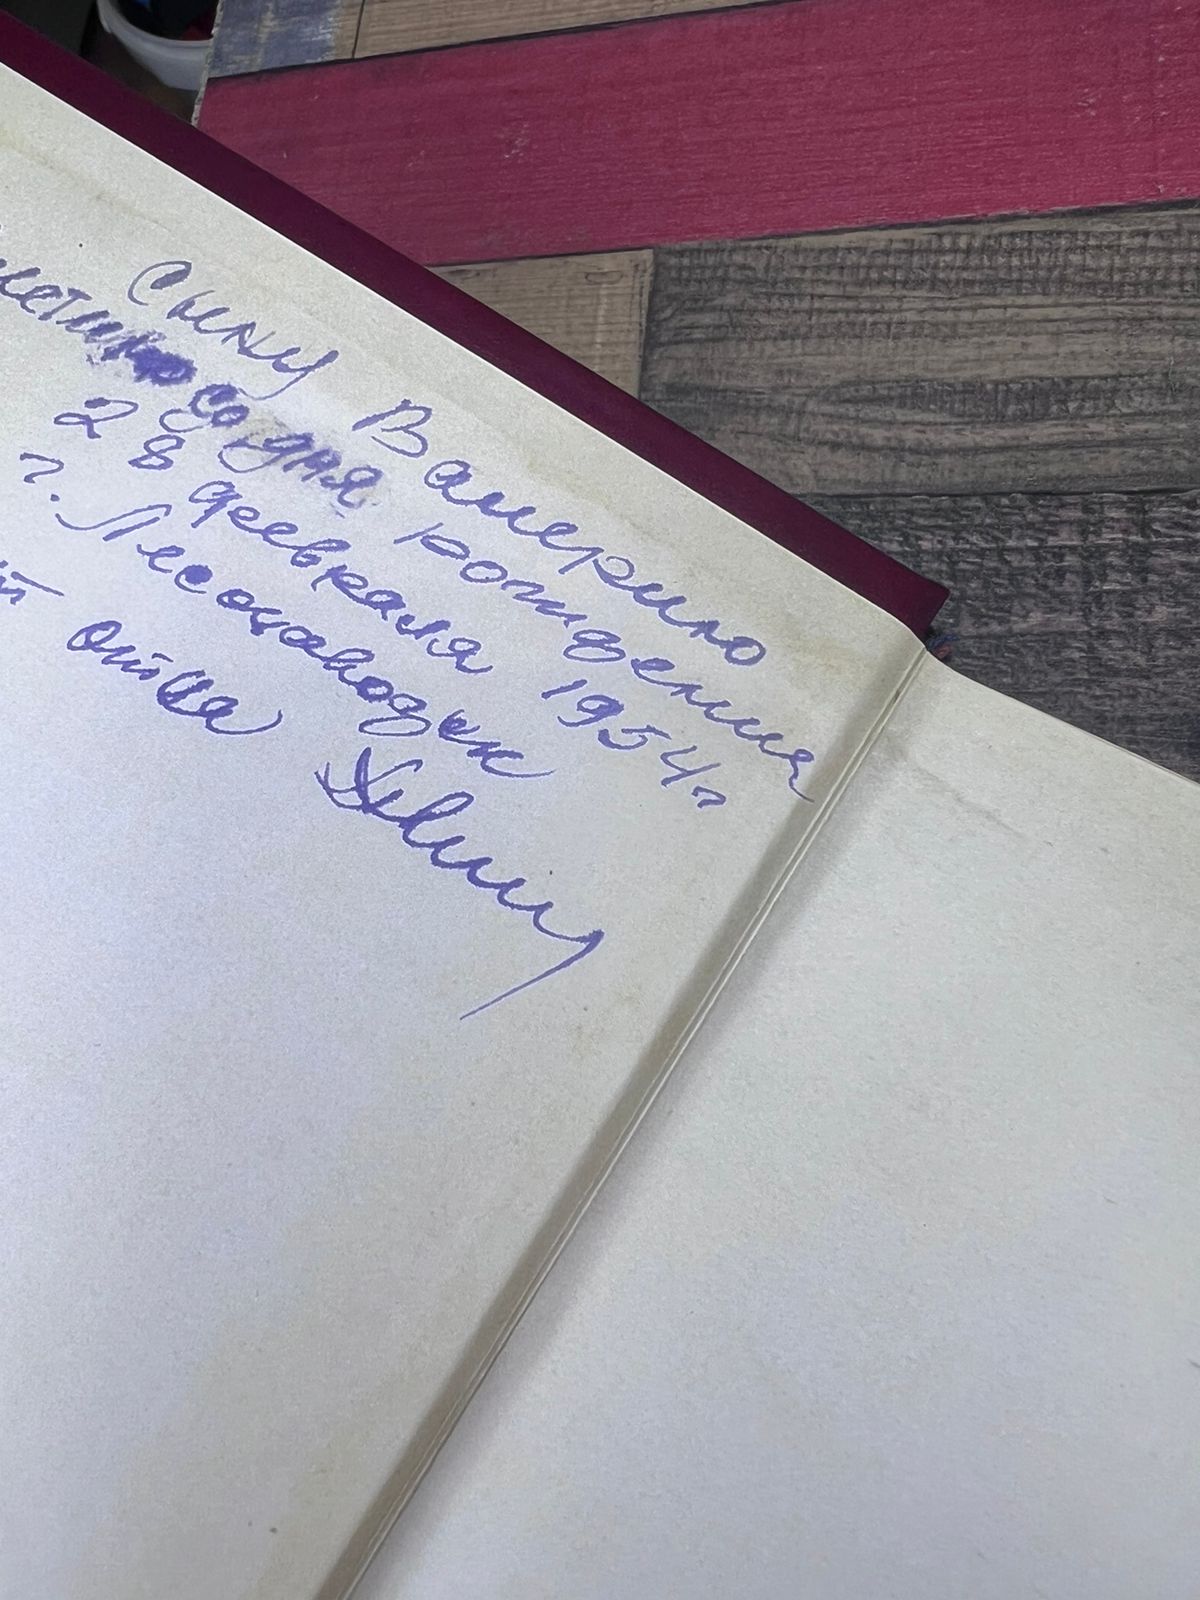 Сыну Валерию
летию со дня рождения
28 февраля 1954 г
г. Лесозаводск
от отца